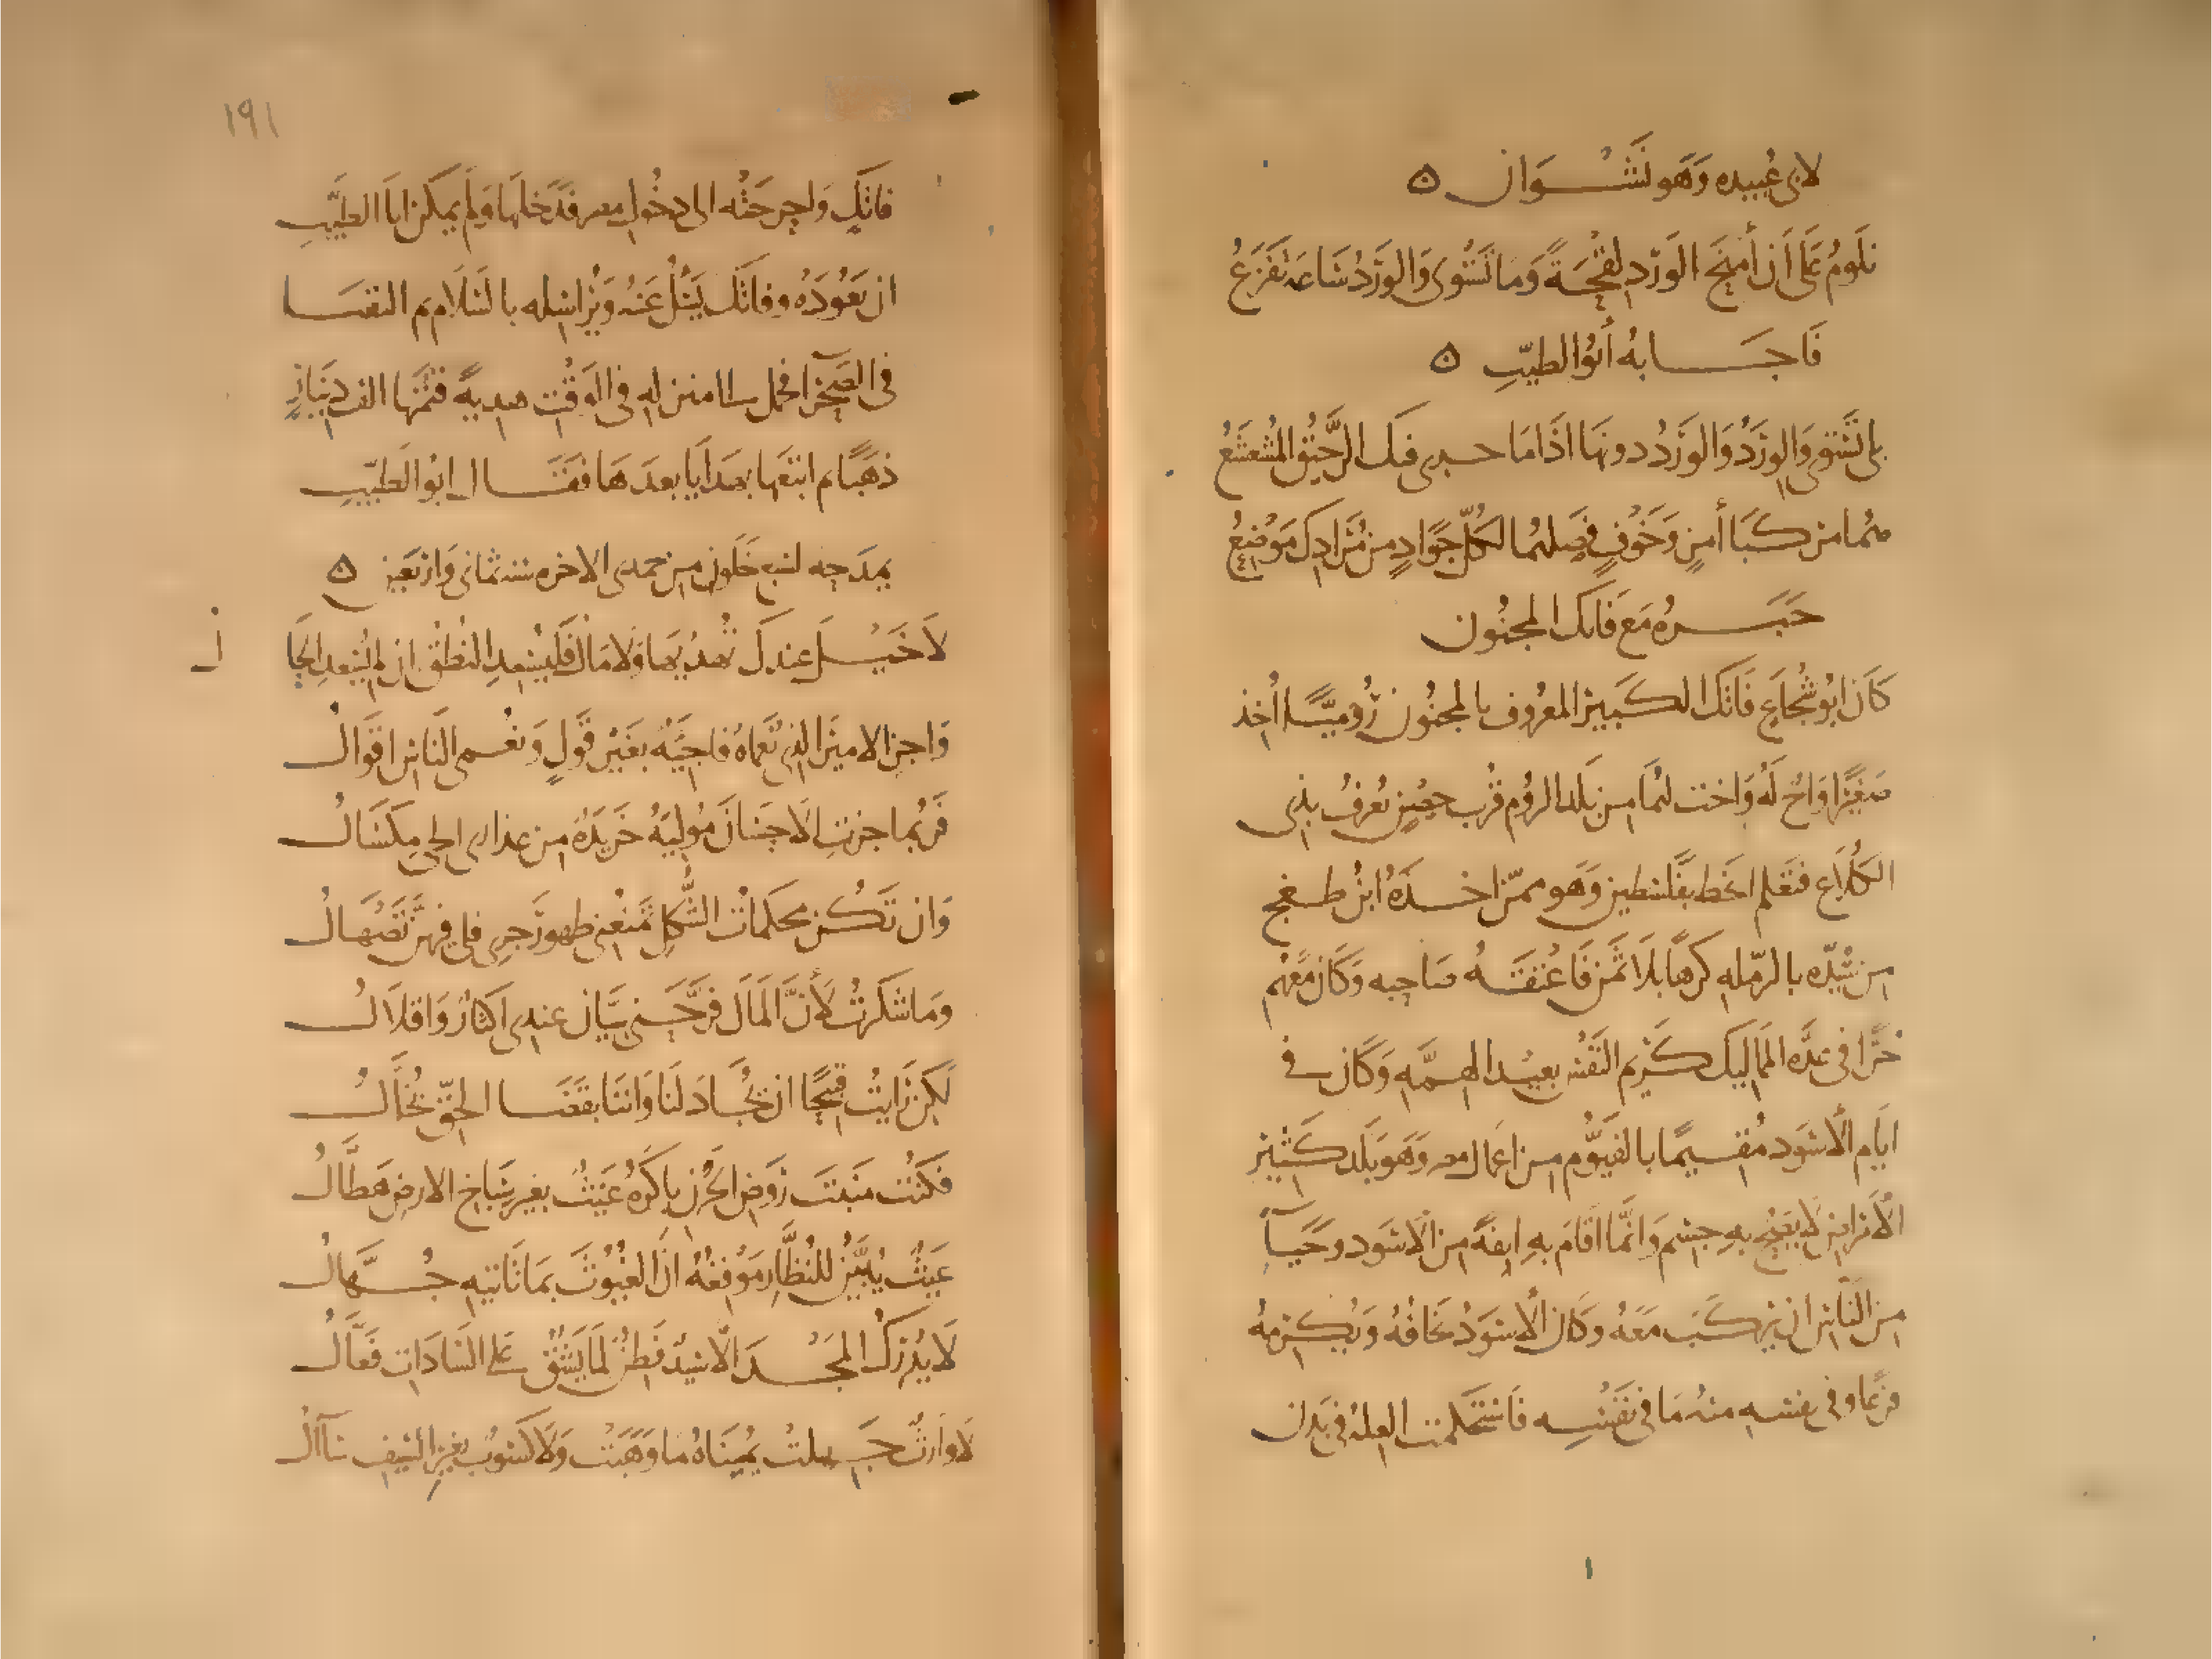 لابى عُبيده وَهَو نَشْــوَان ه
تلَومُ عَلَى أن أمنَحَ الوَرْدِ لقْحَــةً وَمَا تَسْتَوى وَالوَرْدُ سَاعَه تَفزَعُ
فَاجَــــابهُ أبُوُ الطيّبِ ه
بلى تَسْتَوِى وَالوَرْدُ وَالوَرْدُ دونهَا اذَا مَا جــرى فيك الرَّحيْقُ المُشعشَعُ
هُما مركــبَا أمنٍ وَخَوْفٍ فصِلهُما لكُلّ جَوَادٍ مِن مُرَادِكَ مَوْضِعُ
خَبَــــرهُ مَعَ فَاتك المجنُون
كَانَ ابُو شُجَاعٍ فَاتكَ الكــبيرُ المعرُوف بالمجنُون رُوْميّــا اُخِذ
صَغِيْرًا وَاخٌ لَهُ وَاخت لهُمَا مِن بَلَد الرُومِ قُرْب حِصْنٍ يُعرفُ بذِى
الكُلَاعِ فتعَلم الخَط بفَلسْطين وَهو ممّن اخــذَهُ ابنُ طــغج
مِن سَيّدَه بالرّمله كرهًا بلَا ثَمن فَاعْتقَــهُ صَاحِبه وَكَان مَعَهُم
حُرًّا فى عدَّه الممَاليك كَــريم النَفْسِ بعيْــد الهــمَّهِ وَكَان فى
ايَام الأسْوَد مُقِــيمًا بالفَيُّوم مِن اعمَال مصر وَهَو بَلَد كَــثيْر
الأمرَاضِ لا يصحُّ بِهِ جسْم وَانَّمَا اقامَ بِهِ انِفَةً مِن الأسْوَد وحَيــآءً
مِن النَاس ان يركَــبَ مَعَهُ وَكَان الأسْوَدُ يخافُهُ وَيُكــرمهُ
فزعًا وفى نفسهِ منهُ مَا فى نفْسِــه فَاسْتَحكمت العِلهُ فى بَدَن
١٩١
فاتكٍ وَاحوجَتْه الى دخُول مصر فَدَخلهَا وَلَم يمكن ابَا الطيِّبِ
ان يَعُوْدَهُ وفَاتكٌ يَسْئلُ عَنهُ وَيُرَاسِله بالسَلَام ثم التقيَــا
فى الصَّحْرآ فحمَل الى منزلهِ فى الوَقْتِ هديهً قيمَتُهَا الف دِيْنَارٍ
ذهبًا ثم اتبَعَها بهَدَايَا بعدَهَا فقَــال ابُو الطيّبِ
يمدَحِه لتسع خَلَوْن مِن جمدى الاخره سنه ثمانٍ وَارْبعَين ه
لَا خَيْــلَ عندكَ تُهْديْهَا وَلَا مَالُ فَليُسْعِدِ النُطْقُ ان لم يُسْعدِ الحَا
لُ
وَاجزِ الاميْرَ الذِى نُعْمَاهُ فَاجِئَهٌ بغَيْرِ قَولٍ وَنُعْــمى النَاسِ اقوَالُ
فَرُبما جزتِ الاحسَانَ مُوْلِيَهُ خَرِيْدَهٌ مِن عذارى الحى مِكسَالُ
وَان تَكُــن محكمَاتُ الشُّكلِ تمْنعُنى ظهورَ جرىٍ فلى فيهنَّ تَصْهَالُ
وَمَا شَكَرتُ لأَنَّ المَالَ فَرَّحَــنى سِيَّانِ عندِى اكثارٌ وَاقلَالُ
لَكن رَايْتُ قبيْحًا ان يُجَــادَ لنَا وَانَّنَا بقَضَــا الحَقِّ بُخَّالُ
فَكنْتُ مَنبَتَ رَوْضِ الحَزْنِ بَاكَرَهُ غَيْثٌ بغيرِ سِبَاخِ الارضِ هَطَّالُ
غَيثٌ يُبيّنُ للنُظَّارِ مَوْقِعُهُ انَّ الغُيُوثَ بمَا تَاتيهِ جُــهَّالُ
لَا يُدْركُ المَجْــدَ الّا سَيّدٌ فَطِنٌ لمَا يَشُقُّ عَلى السَادَاتِ فَعَّالُ
لَا وَارثٌ جَــهلتْ يُمْنَاهُ مَا وَهَبَتْ وَلَا كسُوْبٌ بغيْر السَيفِ سَآالُ